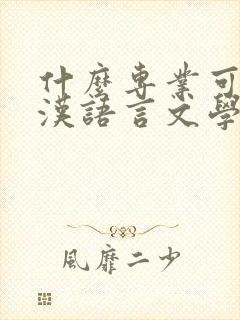 什麼專業可
漢語言文學
風靡二少